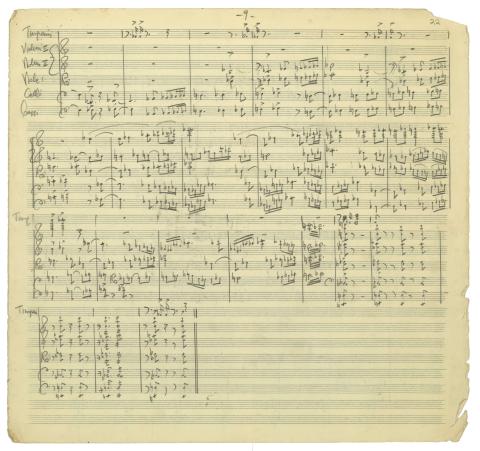 - 9 -
22
Timpani
Violini I
Violini II
Viole
Celli
Bassi
Timp
Timpani